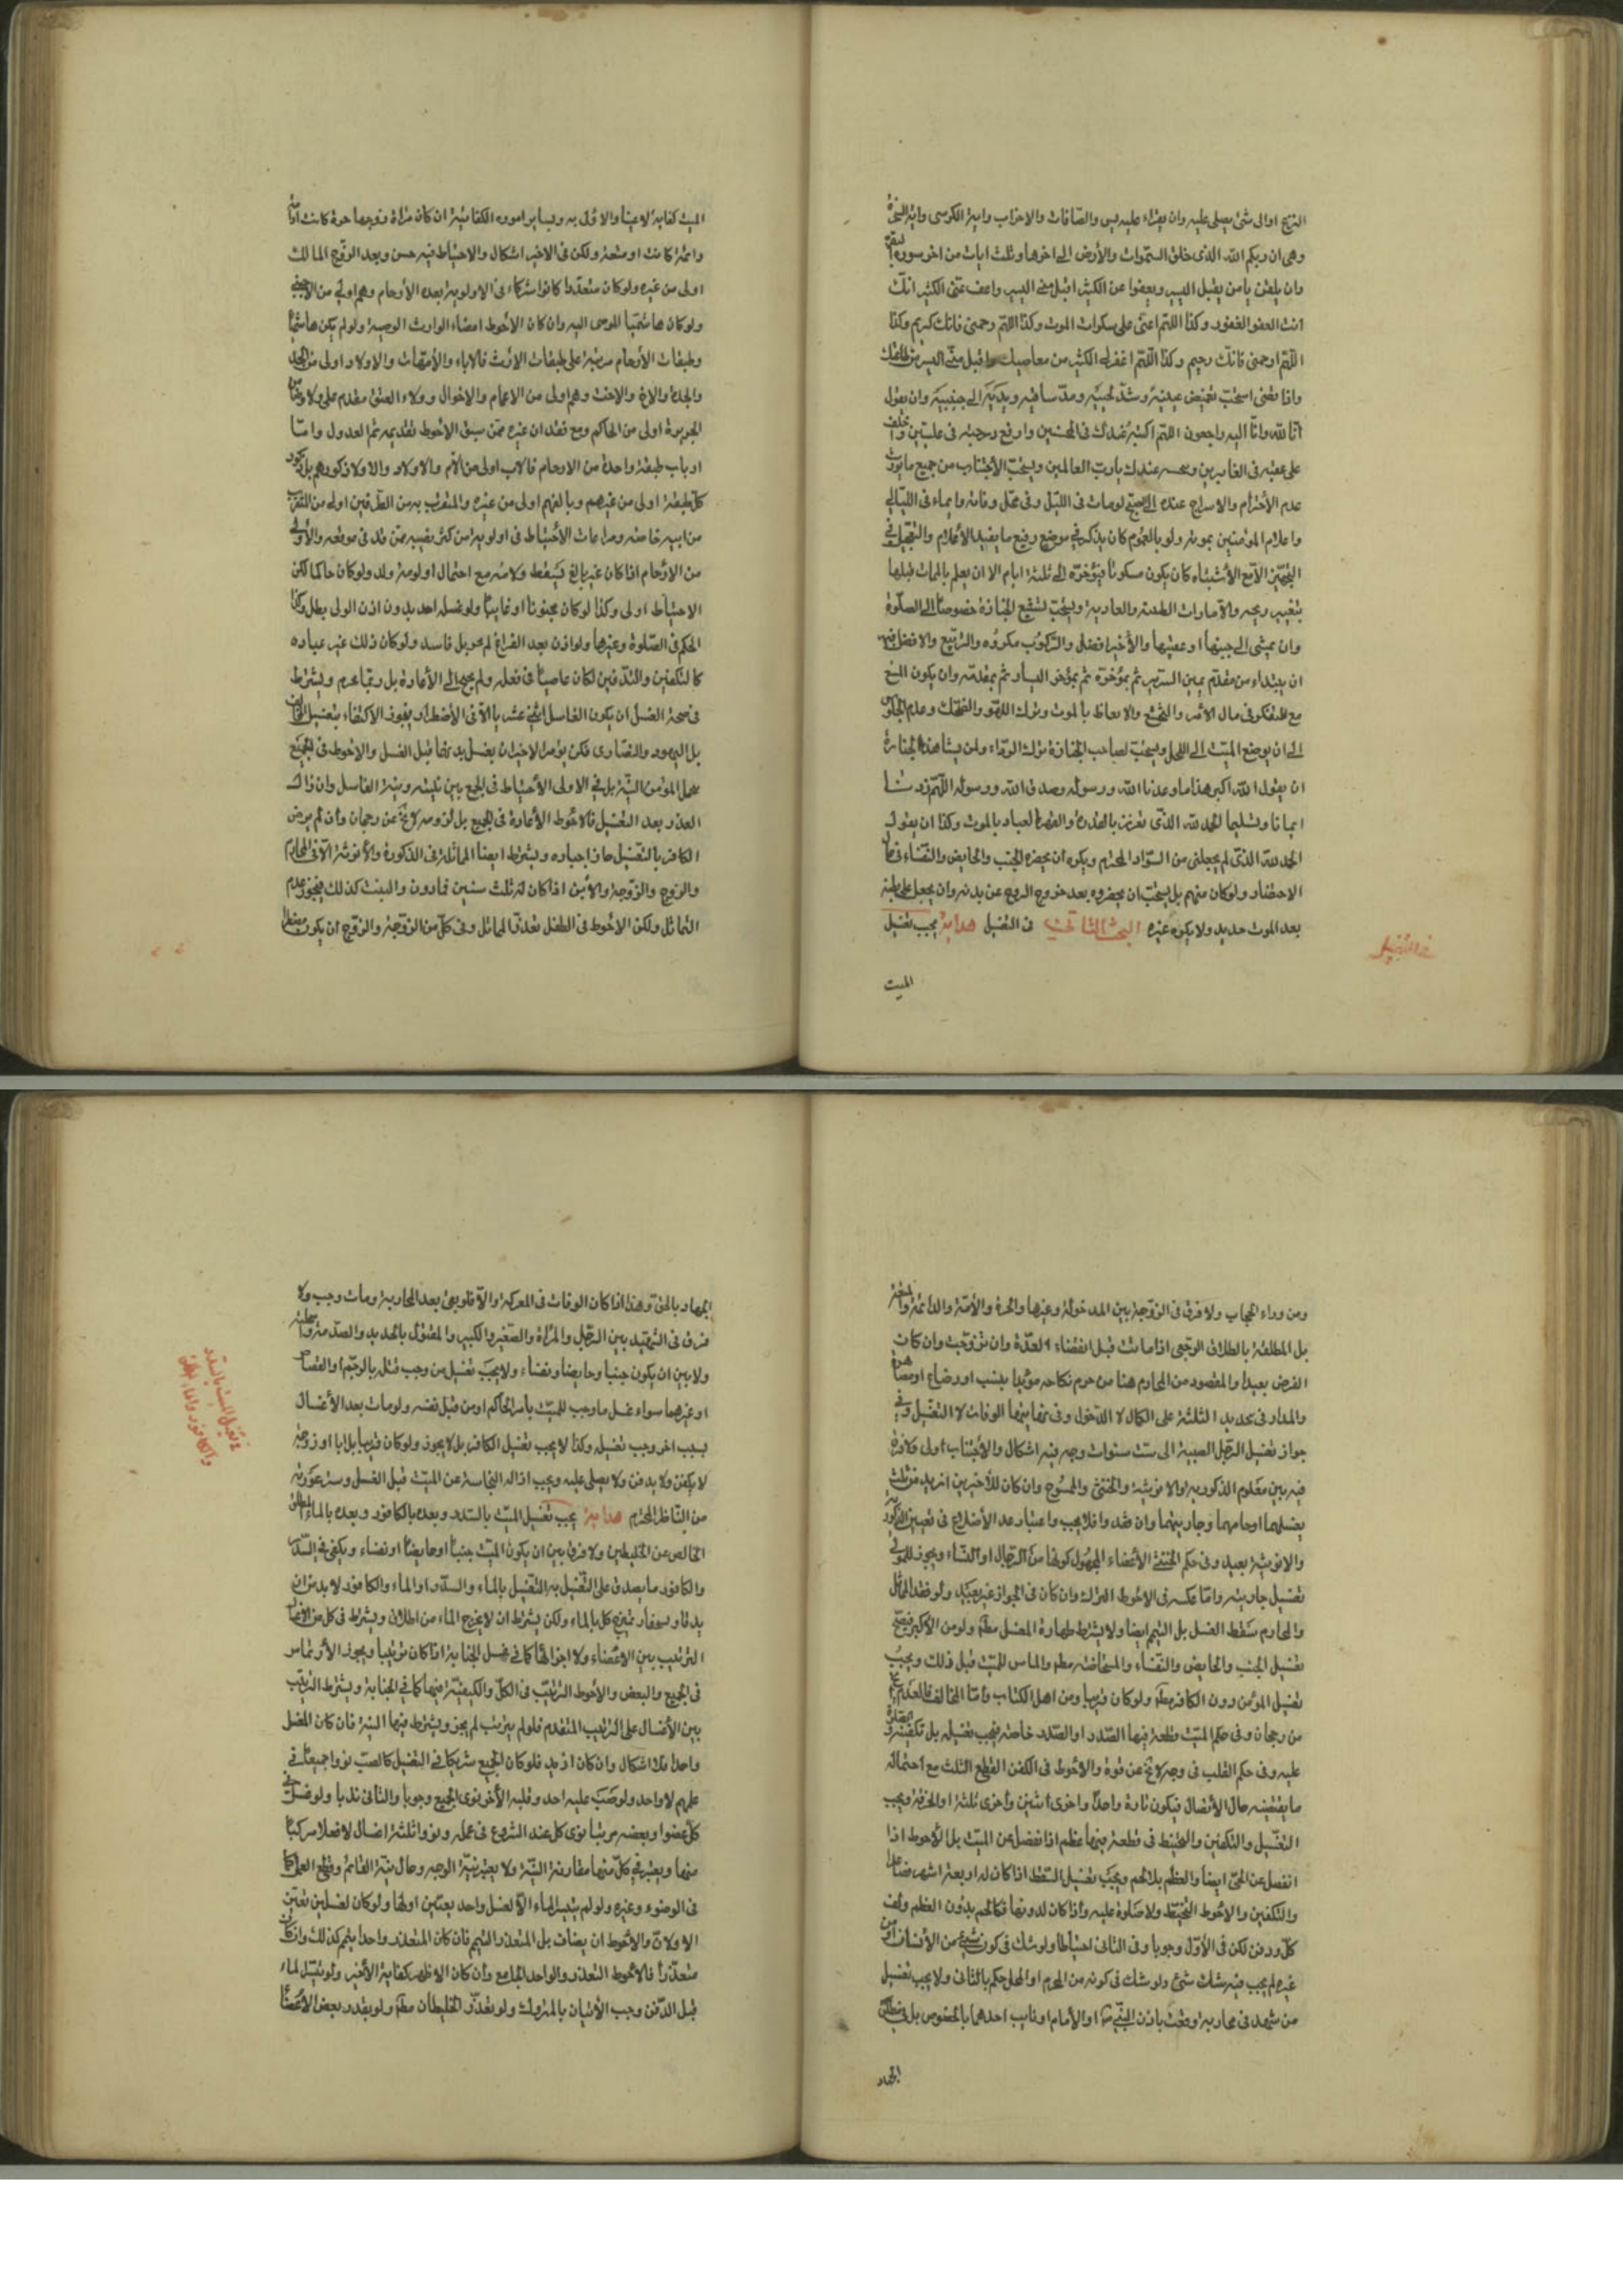 النزع اوالى شئ يصلى عليه وان يقراء عليه يس والصافات والاحزاب واية الكرسى واية السخرة
وهى ان ربكم الله الذى خلق السموات والأرض الى اخرها وثلث ايات من اخر سورة البقرة
وان يلقن يا من يقبل اليسير ويعفوا عن الكثير اقبل منى اليسير واعف عنى الكثير انك
انت العفو الغفور وكذا اللهم اعنى على سكرات الموت وكذا اللهم ارحمنى فانك كريم وكذا
اللهم ارحمنى فانك رحيم وكذا اللهم اغفر لى الكثير من معاصيك واقبل منى اليسير من طاعتك
واذا قضى استحب تغميض عينيه وشد لحييه ومد ساقيه ويديه الى جنبيه وان يقول
انا لله وانا اليه راجعون اللهم اكتبه عندك فى المحسنين وارفع درجته فى عليين واخلف
على عقبه فى الغابرين ونحتسبه عندك يا رب العالمين ويستحب الأجتناب من جميع ما يورث
عدم الأحترام والاسراج عنده الى الصبح لو مات فى الليل وفى محل وفاته وايماء فى الليالى
واعلام المؤمنين بموته ولو بالعموم كان يذكر فى موضع رفيع ما يفيد الأعلام والتعجيل فى
التجهيز الا مع الأشتباه كان يكون مسكوتا فيؤخره الى ثلثة ايام الا ان يعلم بالممات قبلها
بتغيير ريحه والامارات الطبية والعادية ويستحب تشييع الجنازة خصوصا الى الصلوة
وان يمشى الى جنبها او عقبها والأخير افضل والركوب مكروه والتربيع والافضل فيه
ان يبتداء من مقدم يمين السرير ثم بمؤخره ثم بمؤخر اليسار ثم بمقدمه وان يكون المشيع
مع التفكر فى مال الأمر والتخشع والاتعاظ بالموت وترك اللهو والضحك وعدم الجلوس
الى ان يوضع الميت الى اللحد ويستحب لصاحب الجنازة ترك الرداء ولمن يشاهد الجنازة
ان يقول الله اكبر هذا ما وعدنا الله ورسوله وصدق الله ورسوله اللهم زدنا
ايمانا وتسليما الحمد لله الذى تعزز بالقدرة والقهر العباد بالموت وكذا ان يقول
الحمد لله الذى لم يجعلنى من السواد المخترم ويكره ان يحضره الجنب والحايض والنفساء فى حال
الاحتضار ولو كان منهم بل يستحب ان يحضروه بعد خروج الروح عن بدنه وان يجعل على بطنه
بعد الموت حديد ولا يكره غيره البحث الثانى فى التغسيل هداية يجب تغسيل
فى التغسيل
الميت
الميت كفاية لا عينا والاولى به وبساير اموره الكفائية ان كان مراة زوجها حرة كانت او امة
دائمة كانت او متعة ولكن فى الاخير اشكال والاحتياط فيه حسن وبعد الزوج المالك
اولى من غيره ولو كان متعددا كانوا شركاء فى الاولوية بعده الأرحام وهم اولى من الأجنبى
ولو كان هاشميا الموصى اليه وان كان الأحوط امضاء الوارث الوصية ولو لم يكن هاشميا
وطبقات الأرحام مرتبة على طبقات الارث فالاباء والأمهات والاولاد اولى من الجد
والجدة والاخ والاخت وهم اولى من الاعمام والاخوال وولاء العتق مقدم على ولاء ضامن
الجريرة اولى من الحاكم ومع فقدان غيره ممن سبق الاحوط تقديمه ثم العدول واما
ارباب طبقة واحدة من الارحام فالاب اولى من الام والاولاد والاولاد ذكورهم بل ذكور
كل طبقة اولى من غيرهم وبالغهم اولى من غيره والمتقرب به من الطرفين اولى من المتقرب
من ابيه خاصة ومراعات الأحتياط فى اولوية من كثر نصيبه ممن قل فى موقعه والأولى
من الأرحام اذا كان غير بالغ فيسقط ولايته مع احتمال اولوية ولد ولو كان حاكما لكن
الاحتياط اولى وكذا لو كان مجنونا او غايبا ولو غسله احد بدون اذن الولى بطل وكذا
الحكم فى الصلوة وغيرها ولو اذن بعد الفراغ لم يجز بل فاسد ولو كان ذلك غير عباده
كالتكفين والتدفين لكان عاصيا فى فعله ولم يحتج الى الأعادة بل ربما يحرم ويشترط
فى صحة الغسل ان يكون الغاسل اثنى عشريا الا فى الأضطرار فيجوز الاكتفاء بتغسيل المخالف
بل اليهود والنصارى لكن يؤمر الاخيران بغسل بدنهما قبل الغسل والاحوط فى الجميع
تحمل المؤمن النية بل فى الاولى الأحتياط فى الجمع بين نيته ونية الغاسل وان زال
العذر بعد التغسيل فالاحوط الأعادة فى الجميع بل لزومه لا يخ عن رجحان وان لم يرض
الكافر بالتغسيل جاز اجباره ويشترط ايضا المماثلة فى الذكورة والأنوثة الا فى المحارم
والزوج والزوجة والأبن اذا كان له ثلث سنين فما دون والبنت كذلك فيجوز عدم
التماثل ولكن الاحوط فى الطفل تعذر المماثل وفى كل من الزوجة والزوج ان يكون مضطرا
ومن وراء الحجاب ولا فرق فى الزوجة بين المدخولة وغيرها والحرة والأمة والدائمة والمتعة
بل المطلقة بالطلاق الرجعى اذا ماتت قبل انقضاء العدة وان تزوجت وان كان
الفرض بعيدا والمقصود من المحارم هنا من حرم نكاحه مؤبدا بنسب او رضاع او مصاهرة
والمدار فى تحديد الثلثة على الكمال لا الدخول وفى نهايتها الوفات لا التغسيل وفى
جواز تغسيل الرجل الصبية الى ست سنوات وجه فيه اشكال والأجتناب اولى ولا فرق
فيه بين معلوم الذكورية والانوثية والخنثى والممسوح وان كان للأخيرين ازيد من ثلث
يغسلهما ارحامهما وجاريتهما وان فقدوا فلا يجب واعتبار عد الأضلاع فى تعيين الذكورية
والانوثية بعيد وفى حكم الخنثى الأعضاء المجهول كونها من الرجال او النساء ويجوز للمولى
تغسيل جاريته واما عكسه فى الاحوط الترك وان كان فى الجواز غير بعيد ولو فقد المماثل
والمحارم سقط الغسل بل التيمم ايضا ولا يشترط طهارة المغسل مط ولو من الأكبر فيصح
تغسيل الجنب والحايض والنفساء والمستحاضة مط والماس للميت قبل ذلك ويجب
تغسيل المؤمن دون الكافر مط ولو كان قريبا ومن اهل الكتاب واما المخالف فالعدم لا يخ
من رجحان وفى حكم الميت قطعة فيها الصدر او الصدر خاصة فيجب تغسيله بل تكفينه والصلوة
عليه وفى حكم القلب فى وجه لا يخ عن قوة والأحوط فى الكفن القطع الثلث مع احتمال
ما يقتضيه حال الأتصال فيكون تارة واحدا واخرى اثنين واخرى ثلثة او الخرقة ويجب
التغسيل والتكفين والتحنيط فى قطعة فيها عظم اذا انفصل عن الميت بل الأحوط اذا
انفصل عن الحى ايضا والعظم بلا لحم ويجب تغسيل السقط اذا كان له اربعة اشهر فصاعدا
والتكفين والاحوط التحنيط ولا صلوة عليه واذا كان لدونها فكاللحم بدون العظم ولف
كل ودفن لكن فى الأول وجوبا وفى الثانى احتياطا ولو شك فى كون شئ من الأنسان او من
غيره لم يجب فيه شئ ولو شك فى كونه من المحرم او المحلل حكم بالثانى ولا يجب تغسيل
من شهد فى محاربة وقعت باذن النبى ص او الأمام او نايب احدهما بالخصوص بل فى مطلق
الجهاد
الجهاد بالحق وهذا اذا كان الوفات فى المعركة والا فلو بقى بعد المحاربة ومات وجب ولا
فرق فى الشهيد بين الرجل والمراة والصغير والكبير والمقتول بالحديد والصدمة
ولا بين ان يكون جنبا وحايضا ونفساء ولا يجب تغسيل من وجب قتله بالرجم او القصاص
او غيرهما سواء غسل ما وجب للميت بامر الحاكم او من قبل نفسه ولو مات بعد الأغسال
بسبب اخر وجب تغسيله وكذا لا يجب تغسيل الكافر بل لا يجوز ولو كان قريبا بل ابا او زوجة
لا يكفن ولا يدفن ولا يصلى عليه ويجب ازالة النجاسة عن الميت قبل الغسل وستر عورته
من الناظر المحترم هداية يجب تغسيل الميت بالسدر وبعده بالكافور وبعده بالماء المطلق
الخالص عن الخليطين ولا فرق بين ان يكون الميت جنبا او حايضا او نفساء ويكفى فى السدر
والكافور ما يصدق على التغسيل به التغسيل بالماء والسدر او الماء والكافور لا بد من ان
يدقا ويمتزج كل بالماء ولكن يشترط ان لا يخرج الماء من اطلاق ويشترط فى كل من الاغسال
الترتيب بين الاعضاء ولا اجزائها كما فى غسل الجنابة اذا كان ترتيبا ويجوز الأرتماس
فى الجميع والبعض والاحوط الترتيب فى الكل والكيفية فيها كما فى الجنابة ويشترط الترتيب
بين الأغسال على الترتيب المتقدم فلو لم يرتب لم يجز ويشترط فيها النية فان كان المغسل
واحدا فلا اشكال وان كان ازيد فلو كان الجميع شريكا فى التغسيل كالصب نووا جميعا فى
عليهم لا واحد ولو صب عليه احد وقلبه الأخر نوى الجميع وجوبا والثانى ندبا ولو غسل
كل عضوا وبعضه مرتبا نوى كل عند الشروع فى عمله ونووا ثلثة اغسال لا فعلا مركبا
منها ويعتبر فى كل منها مقارنة النية ولا يعتبر نية الوجه وحال نية القائم وقطع العمل كما
فى الوضوء وغيره ولو لم يتيسر الماء الا لغسل واحد يعتين اولها ولو كان لغسلين تعين
الاولان والأحوط ان يضاف بل المتعذر التيمم فان كان المتعذر واحدا يتمم كذلك وان كان
متعذرا فالاحوط التعدد والواحد الجامع وان كان الاظهر كفاية الأخير ولو تيسر الماء
قبل الدفن وجب الأتيان بالمتروك ولو تعذر الخليطان مط ولو بقدر بعض الاعضاء
فى تغسيل الميت بالسدر
والكافور والماء الخالص